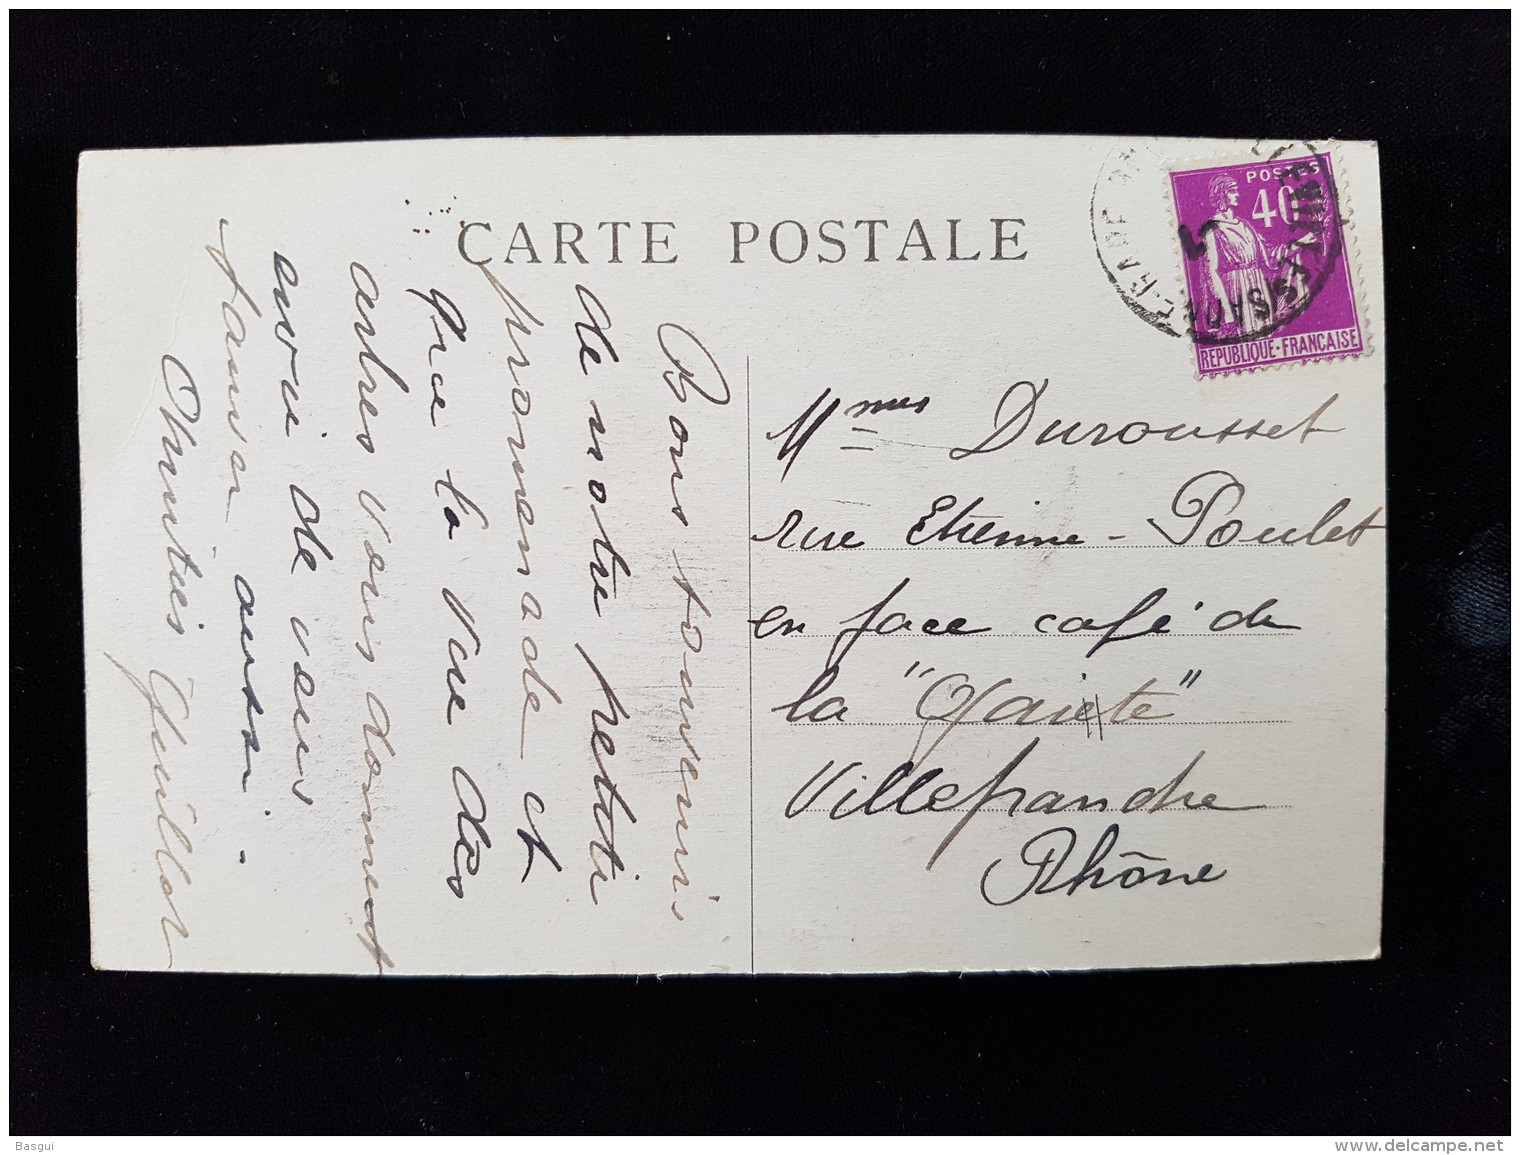 CARTE POSTALE
POSTES
40
REPUBLIQUE-FRANÇAISE
Bons souvenirs
de notre petite
promenade et
que la vue des
arbres vous donnent
envie de vous
aussi.
Amitiés Guillot
Mmes Durousset
rue Etienne-Poulet
en face café de
la "Gaiete"
Villefranche
Rhône
Basgui
www.delcampe.net